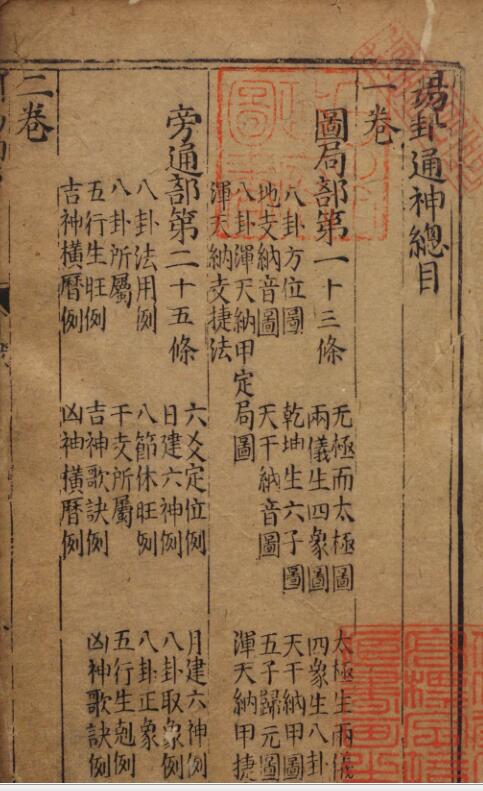 易卦通神總目
一卷
圖局部第一十三條
无極而太極圖 太極生兩儀
兩儀生四象圖 四象生八卦
八卦方位圖 乾坤生六子圖 天干納甲圖
地支納音圖 天干納音圖 五子歸元圖
八卦渾天納甲定局圖 渾天納甲捷
渾天納支捷法
旁通部第二十五條
六爻定位例 月建六神例
日建六神例 八卦取象例
八卦法用例 八節休旺例 八卦正象例
八卦所屬例 干支所屬例 五行生剋例
五行生旺例 吉神歌訣例 凶神歌訣例
吉神橫曆例 凶神橫曆例
二卷